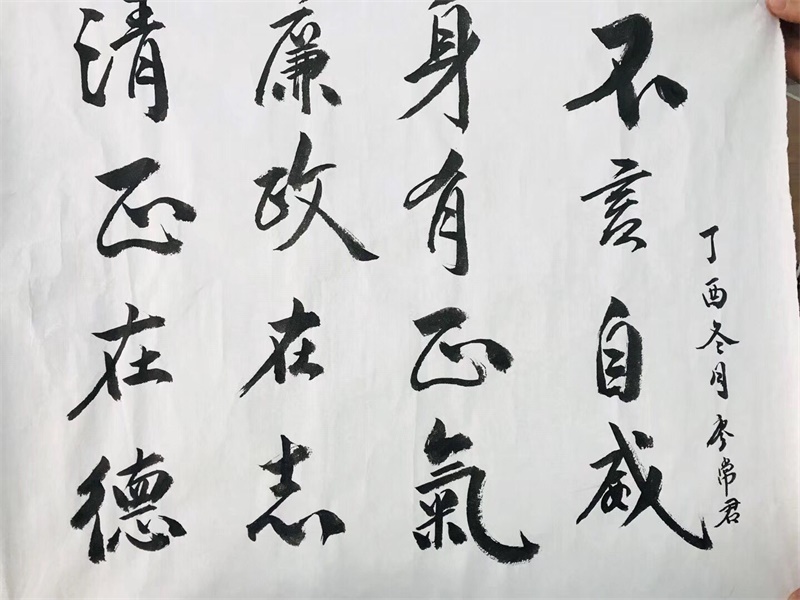 清正在德
廉政在志
身有正氣
不亥自威
丁酉冬月李常君